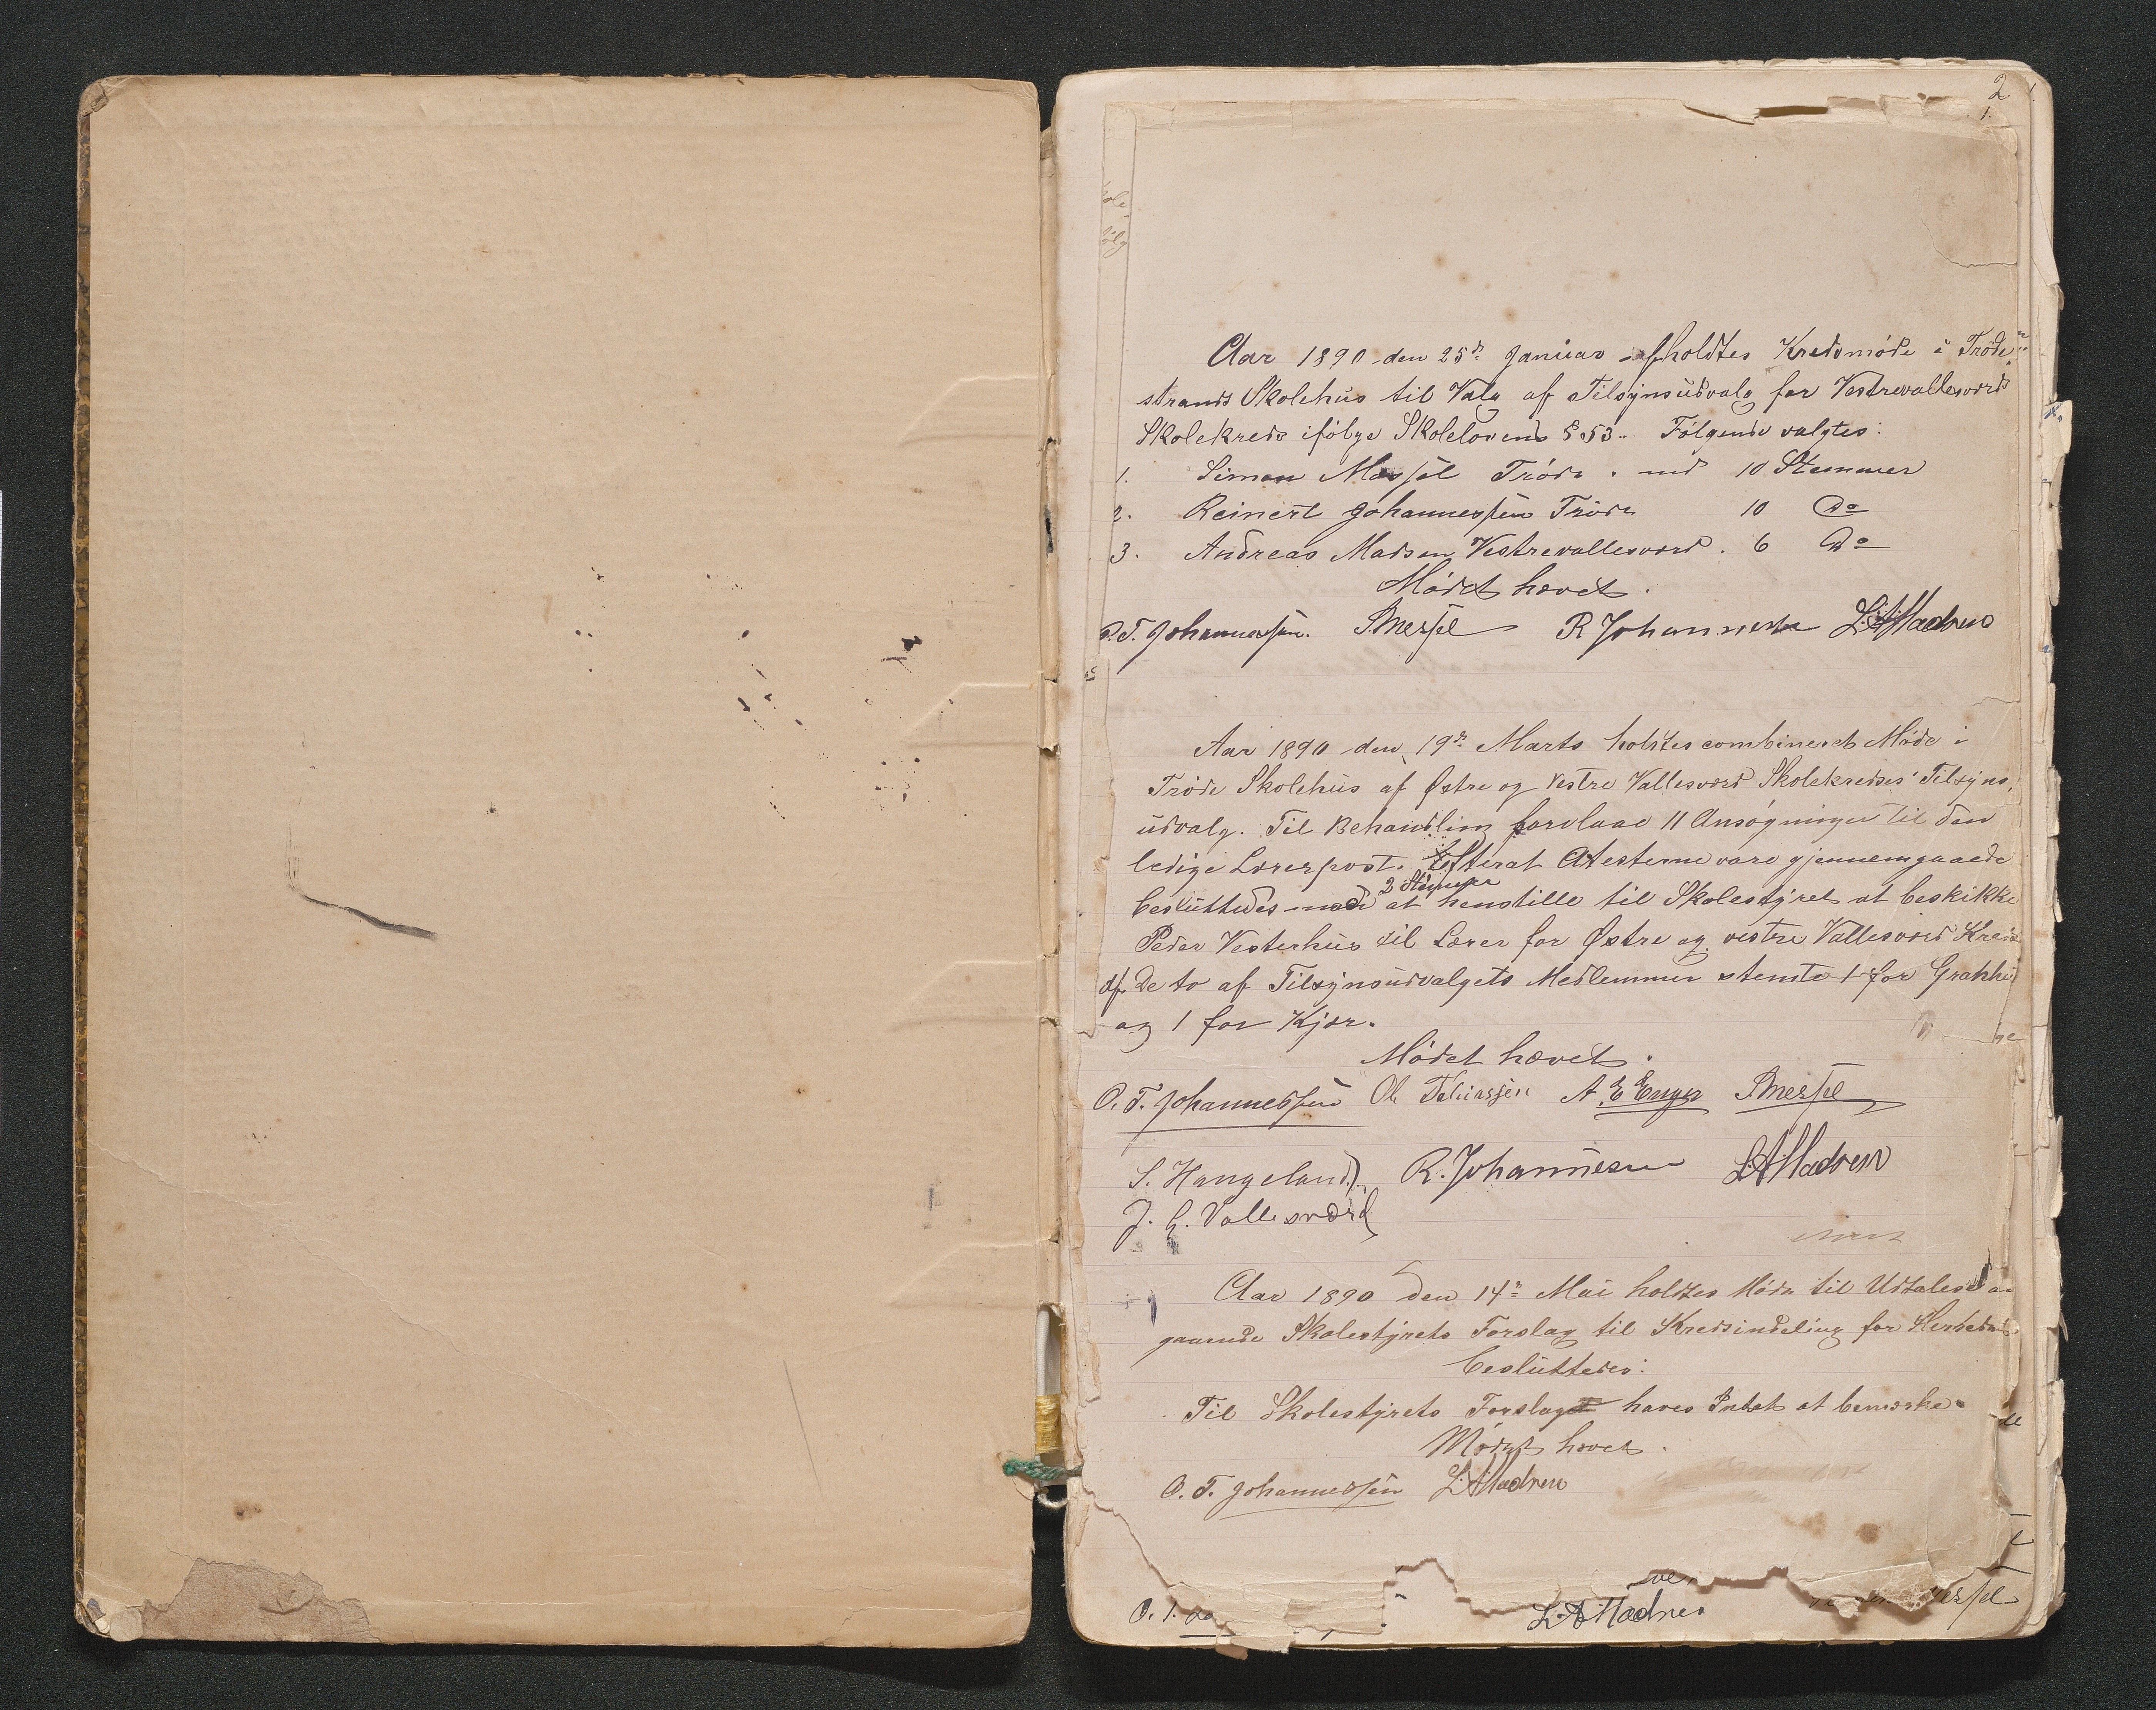 2
1.
Aar 1890 den 25de Januar afholdtes Kredsmøde i Trøde
strands Skolehus til Valg af Tilsynsudvalg for Vestrevallesværd
Skolekreds ifølge Skolelovens § 53. Følgende valgtes:
1. Simon Messel Trøde. med 10 Stemmer
2. Reinert Johannessen Trøde 10 Do
3. Andreas Madsen Vestrevallesværd. 6 Do
Mødet hævet.
O. T. Johannessen. S. Messel R Johannesen L. A. Madsen
Aar 1890 den 19de Marts holdtes combineret Møde i
Trøde Skolehus af Østre og Vestre Vallesværd Skolekredses Tilsyns,
udvalg. Til Behandling forelaae 11 Ansøgninger til den
ledige Lærerpost. Efterat Atesterne vare gjennemgaaede
2 Stemmer
besluttedes med at henstille til Skolestyret at beskikke
Peder Vesterhus til Lærer for Østre og vestre Vallesværd Kreds
Af de to af Tilsynsudvalgets Medlemmer stemte 1 for
og 1 for Kjær.
Mødet hævet.
O. T. Johannessen Ol. Tobiassen A. E. S. Messel
S. Haugeland R. Johannesen L. A. Madsen
J. G. Vallesværd
Aar 1890 den 14de Mai holdtes Møde til Udtalelse an
gaaende Skolestyrets Forslag til Kredsindeling for Herredet
besluttedes:
Til Skolestyrets Forslag haves Intet at bemærke.
Mødet hævet.
O. T. Johannessen L. A. Madsen
L. A. Madsen Messel